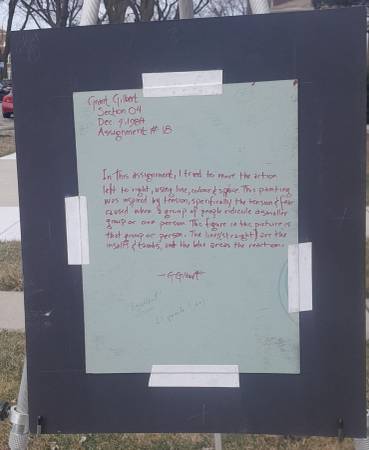 Grant Gilbert
Section 04
Dec. 9, 1984
Assignment # 18
In This assignment, I tried to move the action
left to right, using line, colour & space. This painting
was inspired by tension, specifically the tension & fear
caused when a group of people ridicule a smaller
group or one person. The figure in the picture is
that group or person. The lines (straight) are the
insults & taunts, and the blue areas the reaction.
- G Gilbert